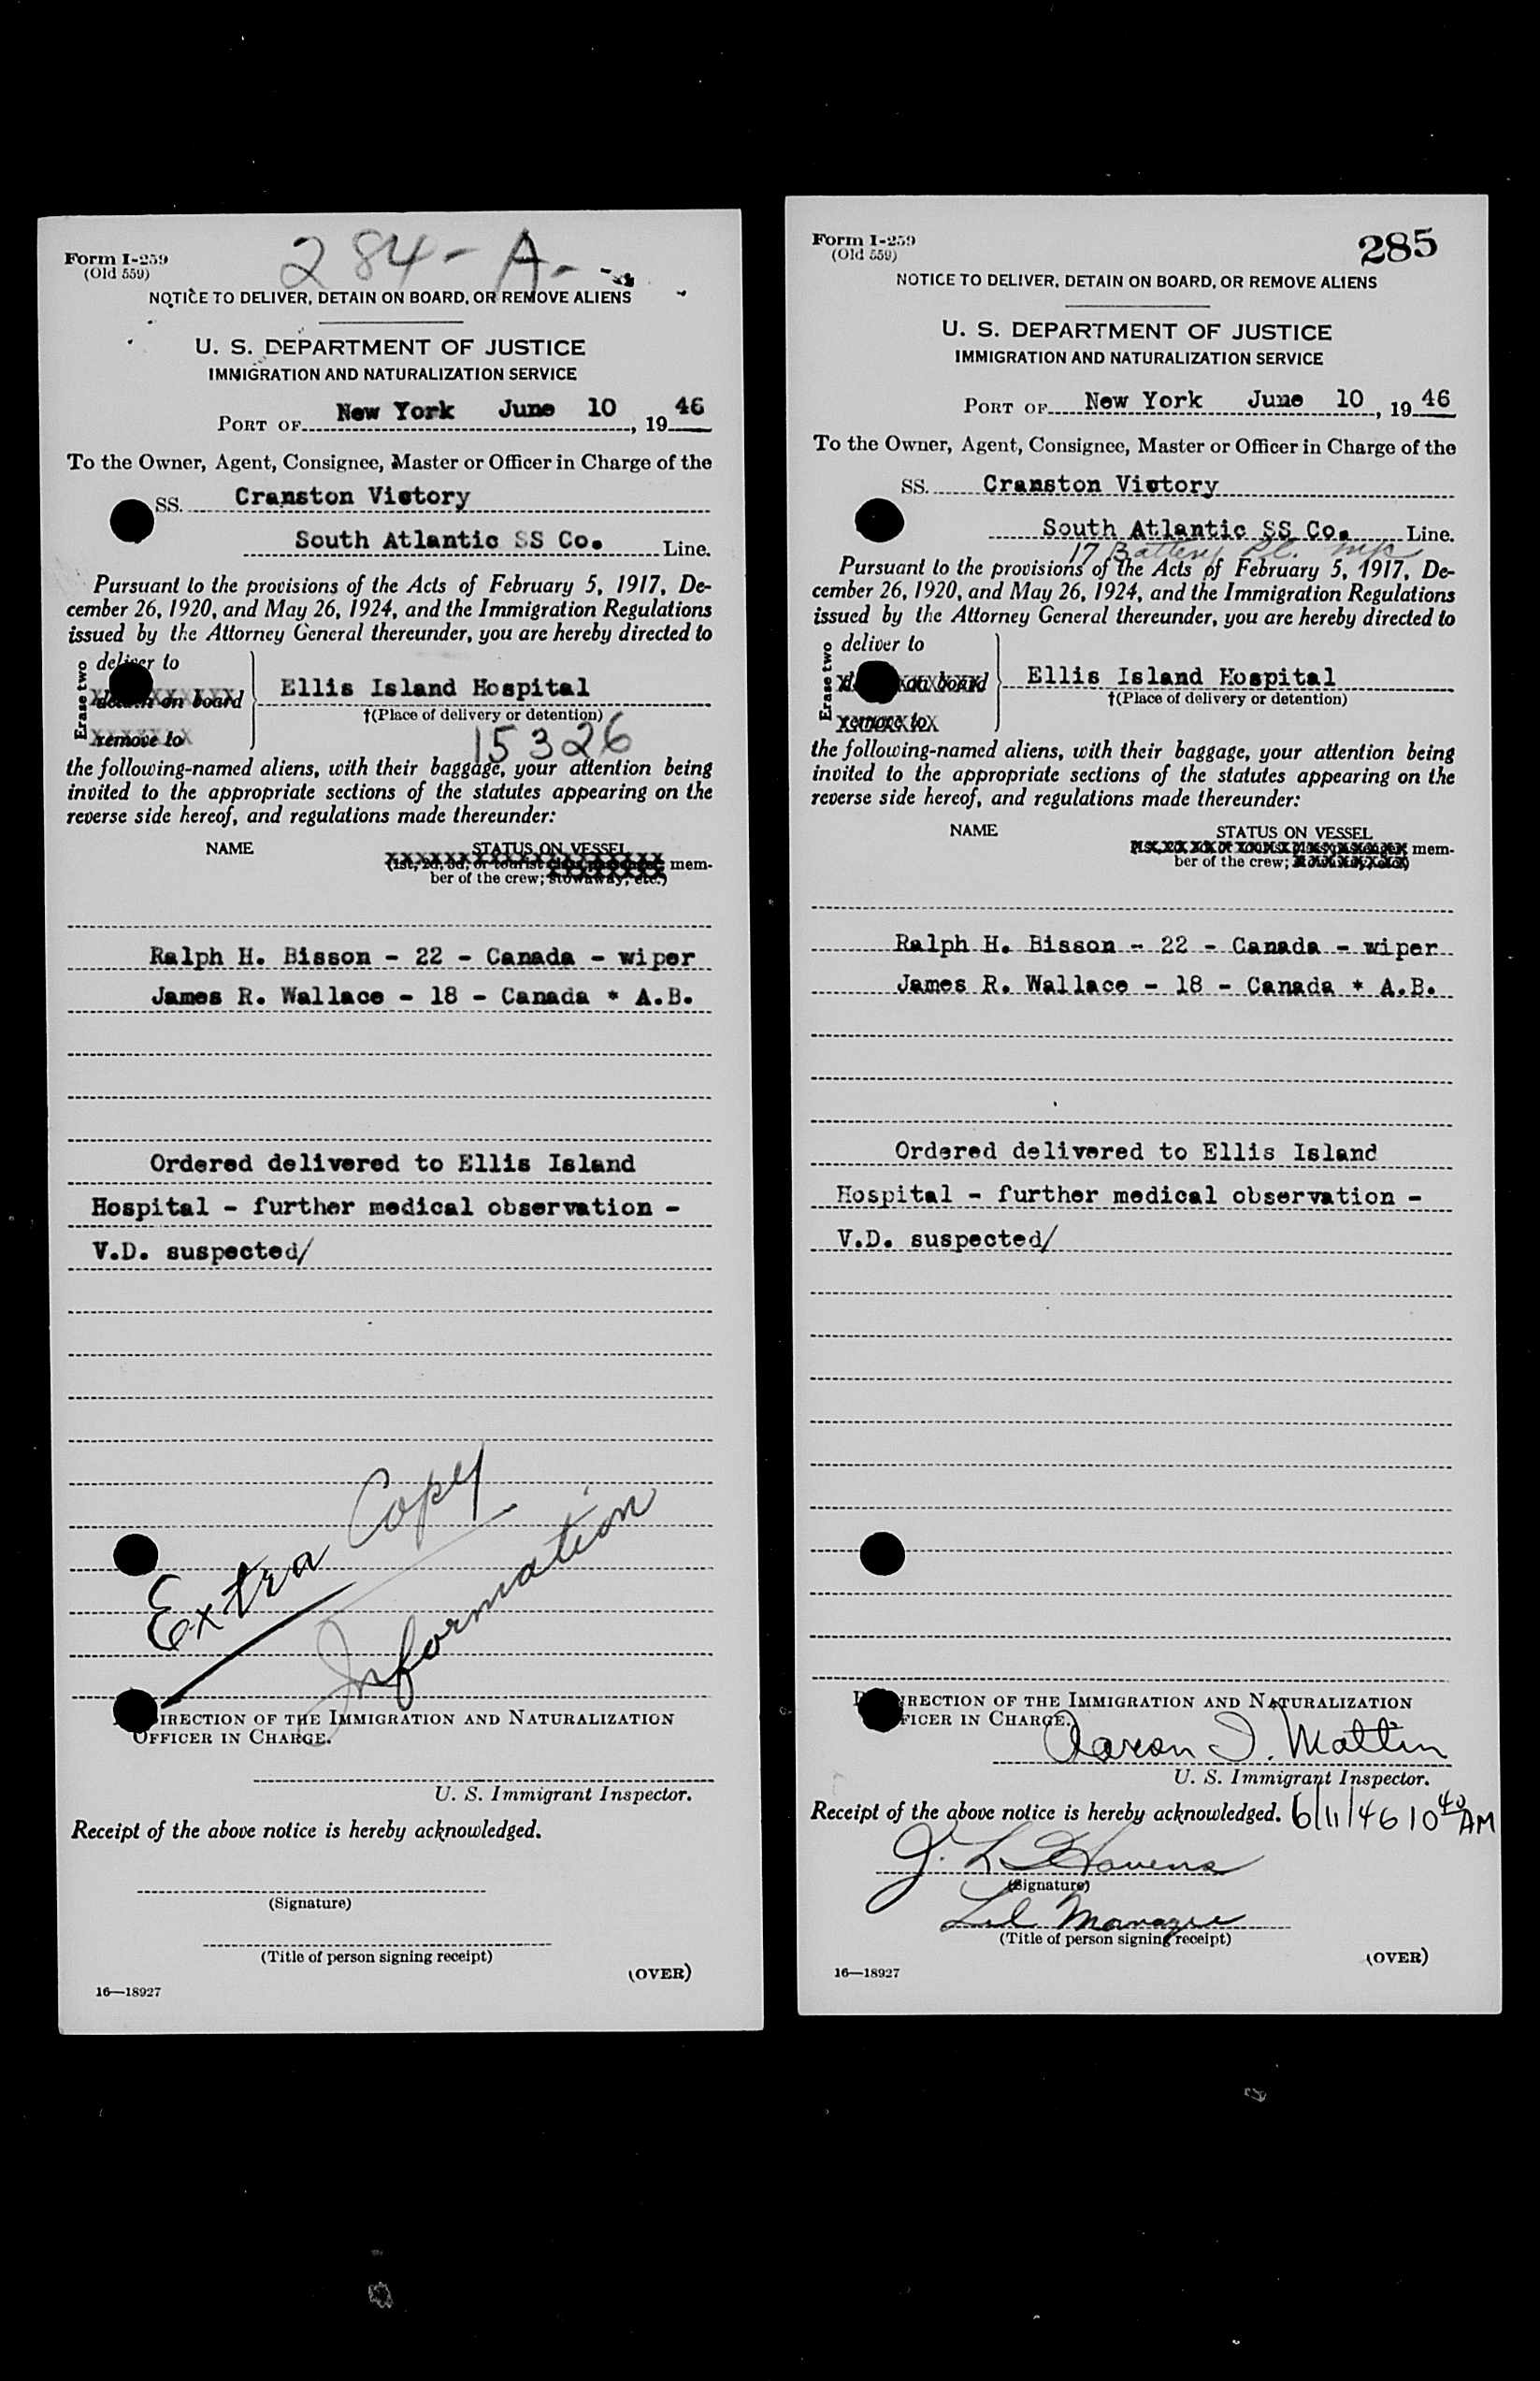 Form I-259
(Old 559)
284-A-
NOTICE TO DELIVER, DETAIN ON BOARD, OR REMOVE ALIENS
U. S. DEPARTMENT OF JUSTICE
IMMIGRATION AND NATURALIZATION SERVICE
PORT OF New York June 10, 1946
To the Owner, Agent, Consignee, Master or Officer in Charge of the
SS. Cranston Victory
South Atlantic SS Co. Line.
Pursuant to the provisions of the Acts of February 5, 1917, De-
cember 26, 1920, and May 26, 1924, and the Immigration Regulations
issued by the Attorney General thereunder, you are hereby directed to
Erase two
deliver to
detain on board
remove to
Ellis Island Hospital
†(Place of delivery or detention)
15326
the following-named aliens, with their baggage, your attention being
invited to the appropriate sections of the statutes appearing on the
reverse side hereof, and regulations made thereunder:
NAME STATUS ON VESSEL
(1st, 2d, 3d, or tourist class passenger; mem-
ber of the crew; stowaway, etc.)
Ralph H. Bisson - 22 - Canada - wiper
James R. Wallace - 18 - Canada * A.B.
Ordered delivered to Ellis Island
Hospital - further medical observation -
V.D. suspected/
Extra Copy
Information
DIRECTION OF THE IMMIGRATION AND NATURALIZATION
OFFICER IN CHARGE.
U. S. Immigrant Inspector.
Receipt of the above notice is hereby acknowledged.
(Signature)
(Title of person signing receipt)
(OVER)
16—18927
Form I-259
(Old 559)
285
NOTICE TO DELIVER, DETAIN ON BOARD, OR REMOVE ALIENS
U. S. DEPARTMENT OF JUSTICE
IMMIGRATION AND NATURALIZATION SERVICE
PORT OF New York June 10, 1946
To the Owner, Agent, Consignee, Master or Officer in Charge of the
SS. Cranston Victory
South Atlantic SS Co. Line.
17 Battery Pl.
Pursuant to the provisions of the Acts of February 5, 1917, De-
cember 26, 1920, and May 26, 1924, and the Immigration Regulations
issued by the Attorney General thereunder, you are hereby directed to
Erase two
deliver to
on board
remove to
Ellis Island Hospital
†(Place of delivery or detention)
the following-named aliens, with their baggage, your attention being
invited to the appropriate sections of the statutes appearing on the
reverse side hereof, and regulations made thereunder:
NAME STATUS ON VESSEL
mem-
ber of the crew;
Ralph H. Bisson - 22 - Canada - wiper
James R. Wallace - 18 - Canada * A.B.
Ordered delivered to Ellis Island
Hospital - further medical observation -
V.D. suspected/
DIRECTION OF THE IMMIGRATION AND NATURALIZATION
OFFICER IN CHARGE.
Aaron I. Mattin
U. S. Immigrant Inspector.
Receipt of the above notice is hereby acknowledged. 6/11/46 10 40 AM
J. L. Havens
(Signature)
(Title of person signing receipt)
(OVER)
16—18927